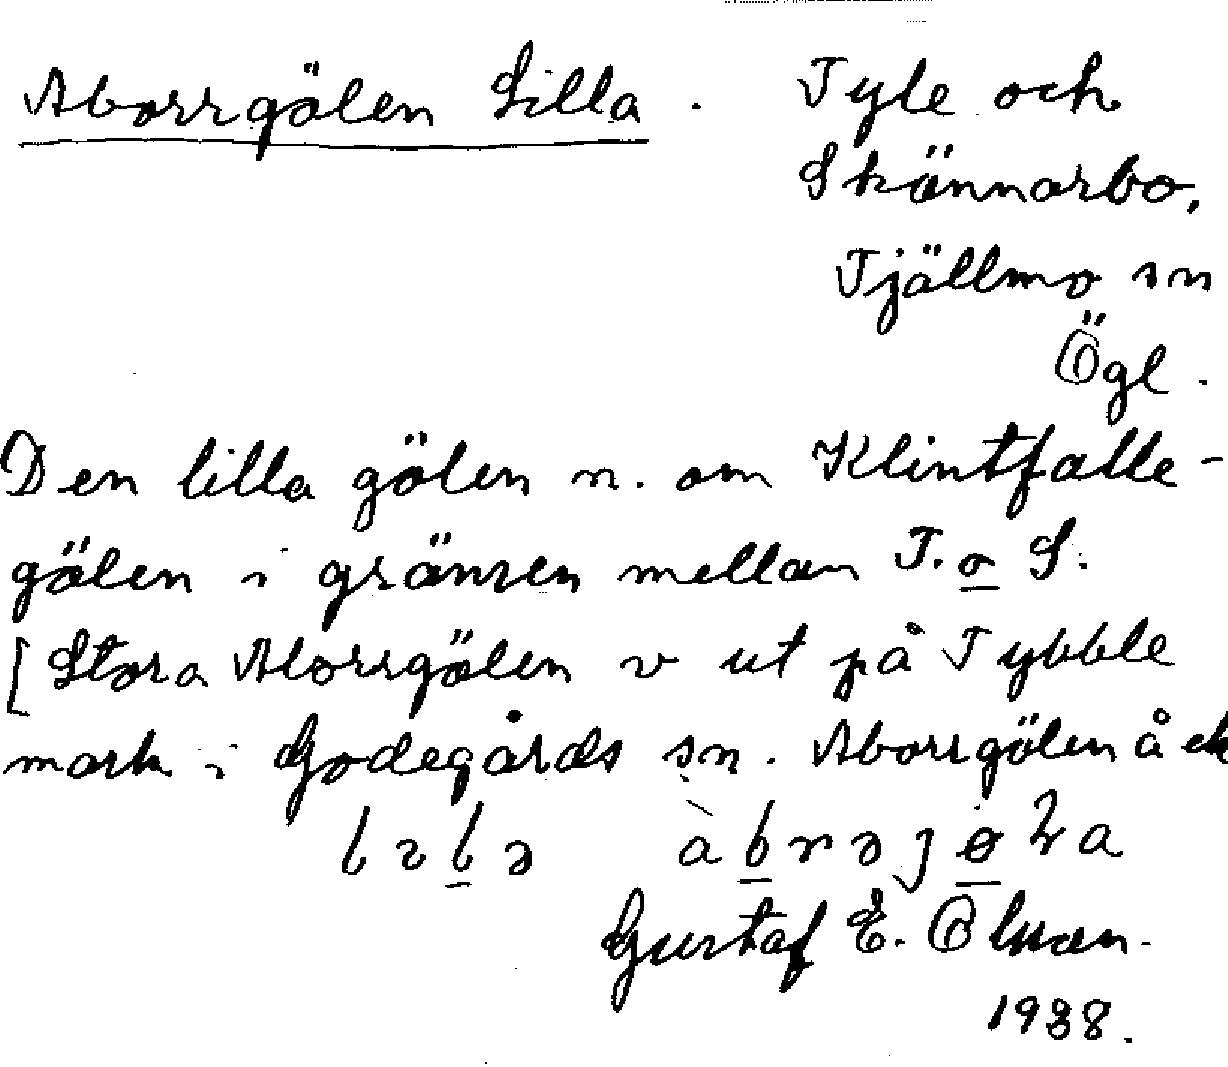 Aborrgölen Lilla. Tyle och
Skännarbo,
Tjällmo sn
Ögl.
Den lilla gölen n. om Klintfalle-
gölen i gränsen mellan T. o S.
[Stora Aborrgölen v ut på Tybble
mark i Godegårds sn. Aborrgölen å ek
Gustaf E. Olsson.
1938.